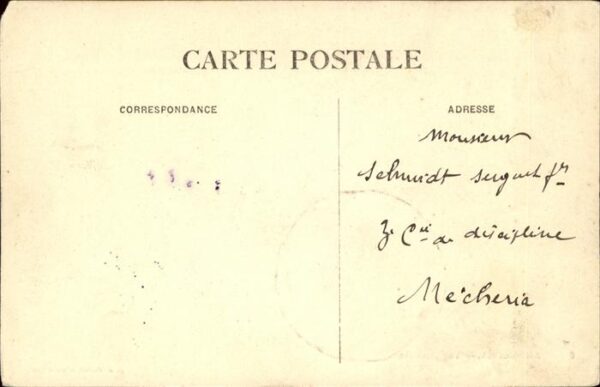 CARTE POSTALE
CORRESPONDANCE
ADRESSE
Monsieur
Schmidt sergent fr
3e Cie de discipline
Mécheria